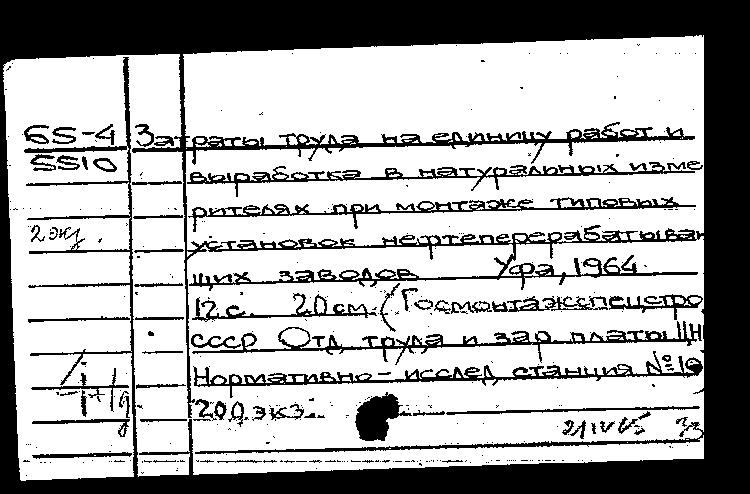 65-4 Затраты труда на единицу работ и
5510 выработка в натуральных изме
рителях при монтаже типовых
2 экз. установок нефтеперерабатываю
щих заводов Уфа, 1964.
12 с. 20 см. (Госмонтажспецстро
СССР Отд. труда и зар. платы ЦН
Нормативно-исслед. станция №10
200 экз.
21 IV 65 33